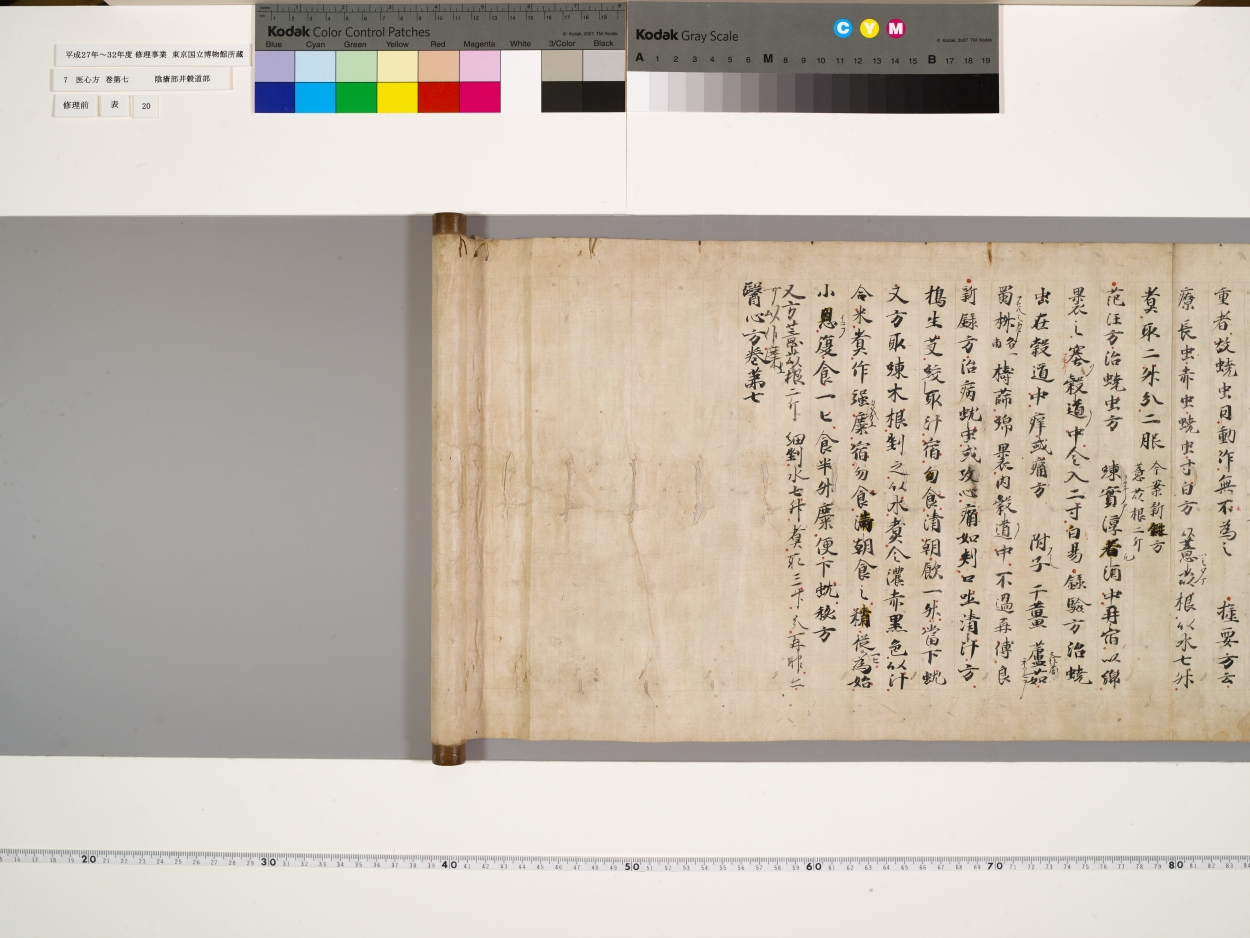 平成27年～32年度 修理事業 東京国立博物館所蔵
7 医心方 巻第七 陰瘡部并穀道部
修理前 表 20
Kodak Color Control Patches
© Kodak, 2007 TM: Kodak
Blue Cyan Green Yellow Red Magenta White 3/Color Black
Kodak Gray Scale
C Y M
© Kodak, 2007 TM: Kodak
A 1 2 3 4 5 6 M 8 9 10 11 12 13 14 15 B 17 18 19
重者故蟯虫因動作無不為之 極要方云
療長虫赤虫蟯虫寸白方 薏苡根以水七升
煮取二升分二服 今案新錄方薏苡根二斤
范汪方治蟯虫方 練實淳苦酒中再宿以綿
裹之塞穀道中令入二寸 白易 錄驗方治蟯
虫在穀道中痒或痛方 附子 干薑 蘆茹
蜀椒 各一 擣篩綿裹內穀道中不過再傅良
新錄方治病蚘虫或攻心痛如刺口吐清汁方
擣生艾絞取汁宿勿食清朝飲一升當下蚘
又方取練木根剉之以水煮令濃赤黑色以汁
合米煮作強糜宿勿食清朝食之 從 為始
小息復食一匕食半升糜便下蚘秘方
又方薏苡根二斤 細剉水七升煮取三升
以作糜
醫心方卷第七
20 30 40 50 60 70 80